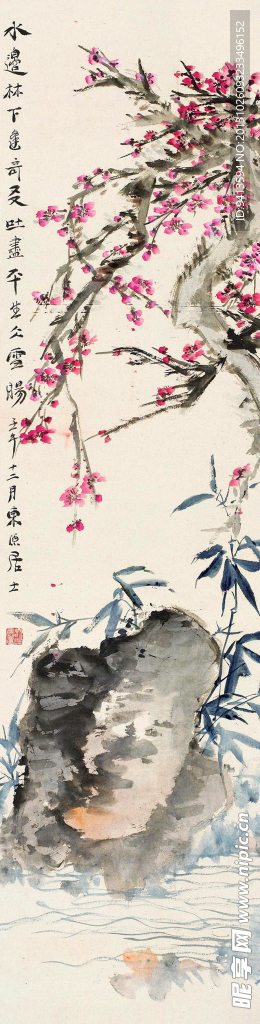 水邊林下逢奇友吐盡平生人雪腸
壬午十二月東原居士
ID:9413594 NO.20131026095233496152
昵享网 www.nipic.cn